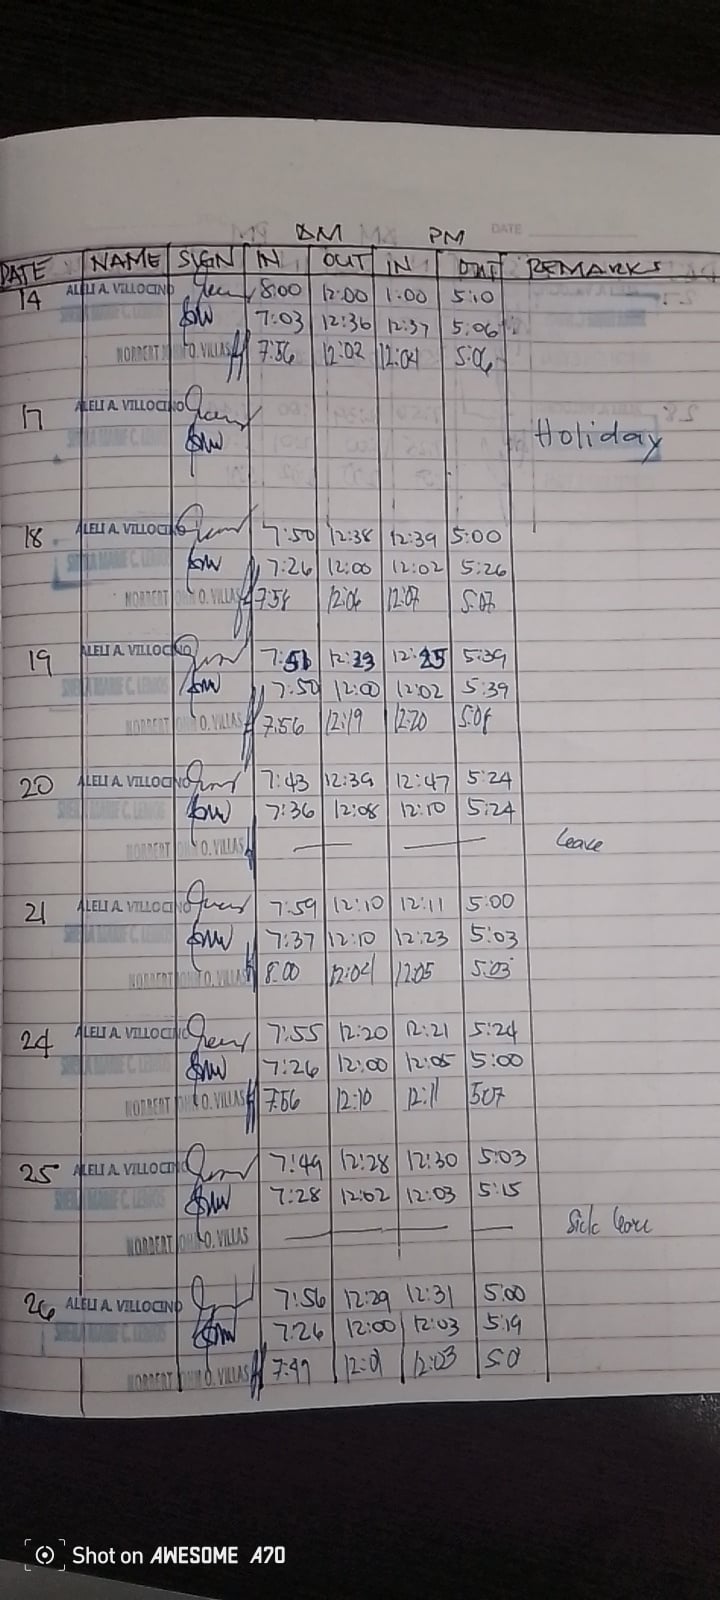 DATE
AM PM
DATE NAME SIGN IN OUT IN OUT REMARKS
14 ALELI A. VILLOCINO 8:00 12:00 1:00 5:10
7:03 12:36 12:37 5:06
NORBERT JOHN O. VILLAS 7:56 12:02 12:04 5:06
17 ALELI A. VILLOCINO
Holiday
18 ALELI A. VILLOCINO 7:50 12:38 12:39 5:00
SHEILA MARIE C. LEMOS 7:26 12:00 12:02 5:26
NORBERT JOHN O. VILLAS 7:58 12:06 12:07 5:07
19 ALELI A. VILLOCINO 12:25 5:39
SHEILA MARIE C. LEMOS 7:50 12:00 12:02 5:39
NORBERT JOHN O. VILLAS 7:56 12:19 12:20 5:08
20 ALELI A. VILLOCINO 7:43 12:39 12:47 5:24
SHEILA MARIE C. LEMOS 7:36 12:08 12:10 5:24
NORBERT JOHN O. VILLAS — — leave
21 ALELI A. VILLOCINO 7:59 12:10 12:11 5:00
SHEILA MARIE C. LEMOS 7:37 12:10 12:23 5:03
NORBERT JOHN O. VILLAS 8:00 12:04 12:05 5:03
24 ALELI A. VILLOCINO 7:55 12:20 12:21 5:24
SHEILA MARIE C. LEMOS 7:26 12:00 12:05 5:00
NORBERT JOHN O. VILLAS 7:56 12:10 12:11 5:07
25 ALELI A. VILLOCINO 7:49 12:28 12:30 5:03
SHEILA MARIE C. LEMOS 7:28 12:02 12:03 5:15
NORBERT JOHN O. VILLAS — — — Sick leave
26 ALELI A. VILLOCINO 7:56 12:29 12:31 5:00
SHEILA MARIE C. LEMOS 7:26 12:00 12:03 5:19
NORBERT JOHN O. VILLAS 7:49 12:01 12:03
Shot on AWESOME A70